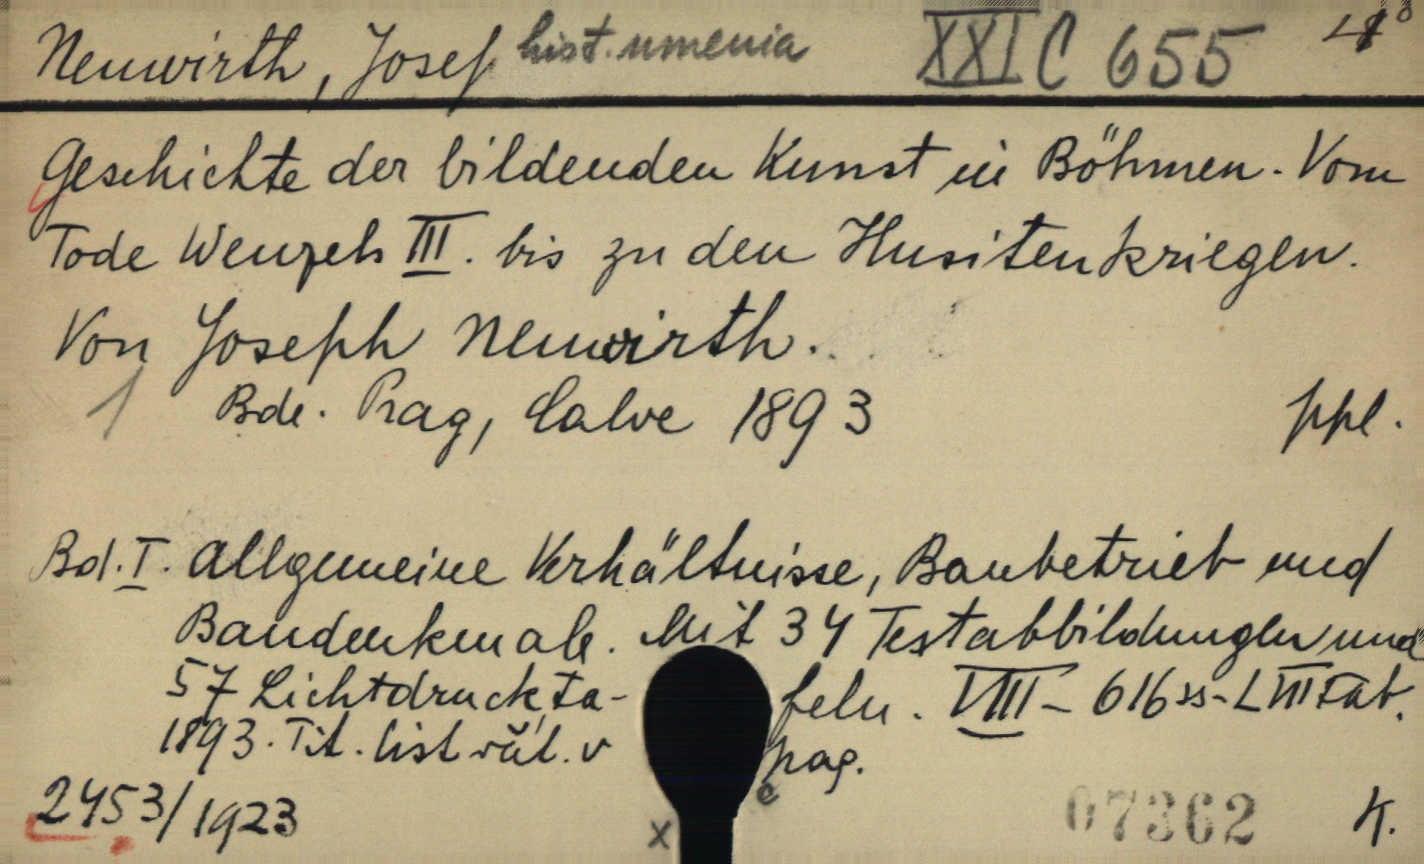 Neuwirth, Josef hist. umenia XXI C 655 4°
Geschichte der bildenden Kunst in Böhmen. Vom
Tode Wenzels III. bis zu den Husitenkriegen.
Von Joseph Neuwirth.
1 Bde. Prag, Calve 1893 ppl.
Bd. I. Allgemeine Verhältnisse, Baubetrieb und
Baudenkmale. Mit 34 Textabbildungen und
57 Lichtdruckta- feln. VIII - 616 ss - LVII Tab.
1893. Tit. list răt. v pag.
c
2453/1923 x 07362 K.